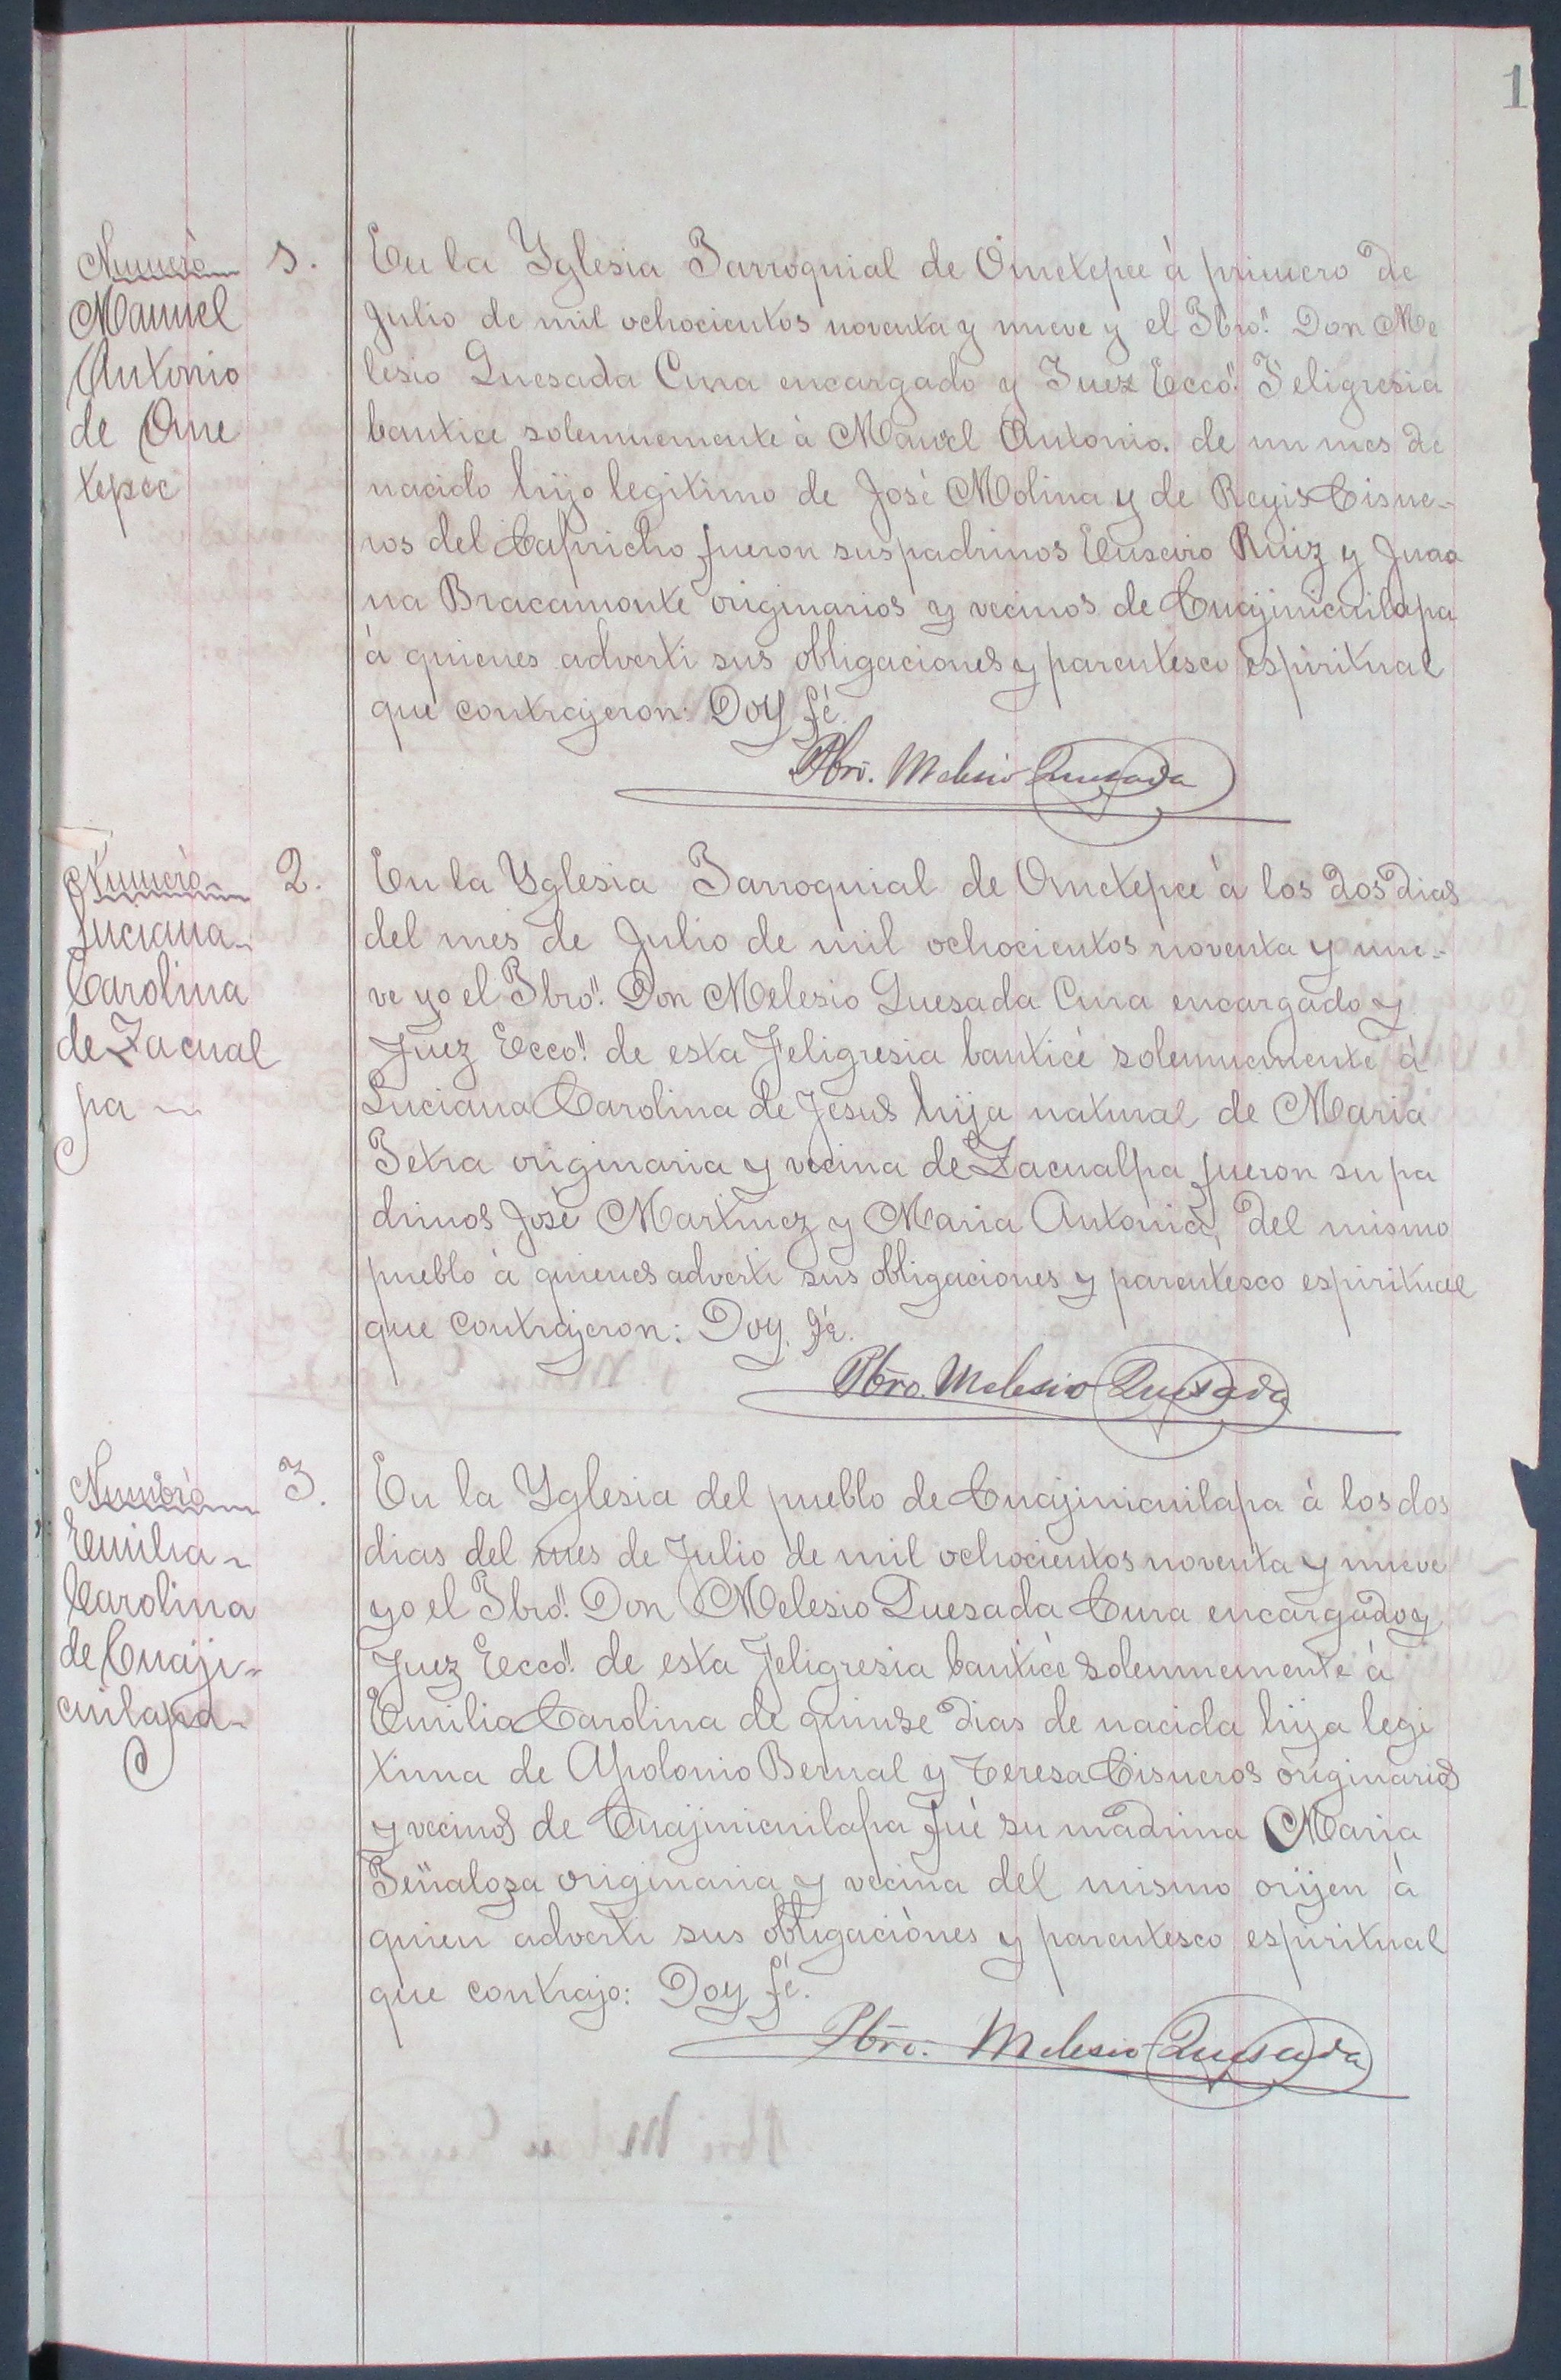 1
Numero 1.
Manuel
Antonio
de Ome
tepec
En la Yglesia Parroquial de Ometepec à primero de
Julio de mil ochocientos noventa y nueve y el Pbro. Don Me
lesio Quesada Cura encargado y Juez Ecco. Feligresia
bautice solemnemente à Manuel Antonio. de un mes de
nacido hijo legitimo de José Molina y de Reyis Cisne-
ros del Capricho fueron sus padrinos Eusevio Ruiz y Juaa
na Bracamonte originarios y vecinos de Cuajinicuilapa
à quienes adverti sus obligaciones y parentesco espiritual
que contrajeron: Doy fé.
Pbro. Melesio Quesada
Numero 2.
Luciana
Carolina
de Zacual
pa
En la Yglesia Parroquial de Ometepec à los dos dias
del mes de Julio de mil ochocientos noventa y nue-
ve yo el Pbro. Don Melesio Quesada Cura encargado y
Juez Ecco. de esta Feligresia bauticé solemnemente à
Luciana Carolina de Jesus hija natural de Maria
Petra originaria y vecina de Zacualpa fueron su pa
drinos José Martinez y Maria Antonia, del mismo
pueblo à quienes adverti sus obligaciones y parentesco espiritual
que contrajeron: Doy fé.
Pbro. Melesio Quesada
Numero 3.
Emilia
Carolina
de Cuaji-
cuilapa
En la Yglesia del pueblo de Cuajinicuilapa à los dos
dias del mes de Julio de mil ochocientos noventa y nueve
yo el Pbro. Don Melesio Quesada Cura encargado y
Juez Ecco. de esta Feligresia bauticé solemnemente à
Emilia Carolina de quinse dias de nacida hija legi
tima de Apolonio Bernal y Teresa Cisneros originarios
y vecinos de Cuajinicuilapa fué su madrina Maria
Peñaloza originaria y vecina del mismo orijen à
quien adverti sus obligaciones y parentesco espiritual
que contrajo: Doy fé.
Pbro. Melesio Quesada